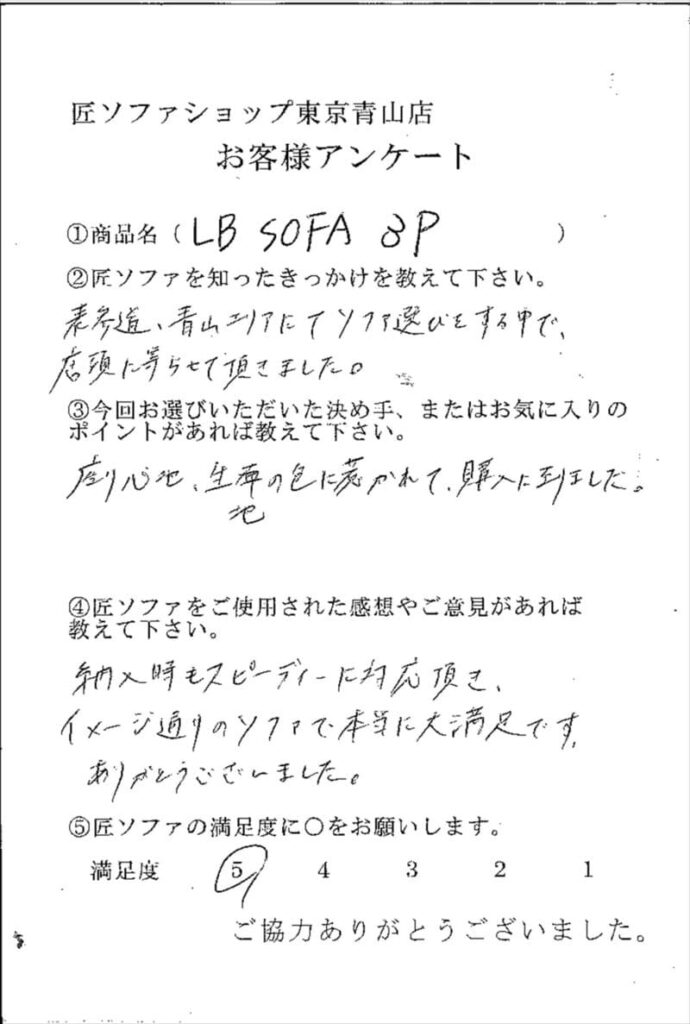 匠ソファショップ東京青山店
お客様アンケート
①商品名（ LB SOFA 3P ）
②匠ソファを知ったきっかけを教えて下さい。
表参道、青山エリアにてソファ選びをする中で、
店頭に寄らせて頂きました。
③今回お選びいただいた決め手、またはお気に入りの
ポイントがあれば教えて下さい。
座り心地、生地の色に惹かれて、購入に到りました。
④匠ソファをご使用された感想やご意見があれば
教えて下さい。
納入時もスピーディーに対応頂き、
イメージ通りのソファで本当に大満足です。
ありがとうございました。
⑤匠ソファの満足度に〇をお願いします。
満足度 5 4 3 2 1
ご協力ありがとうございました。